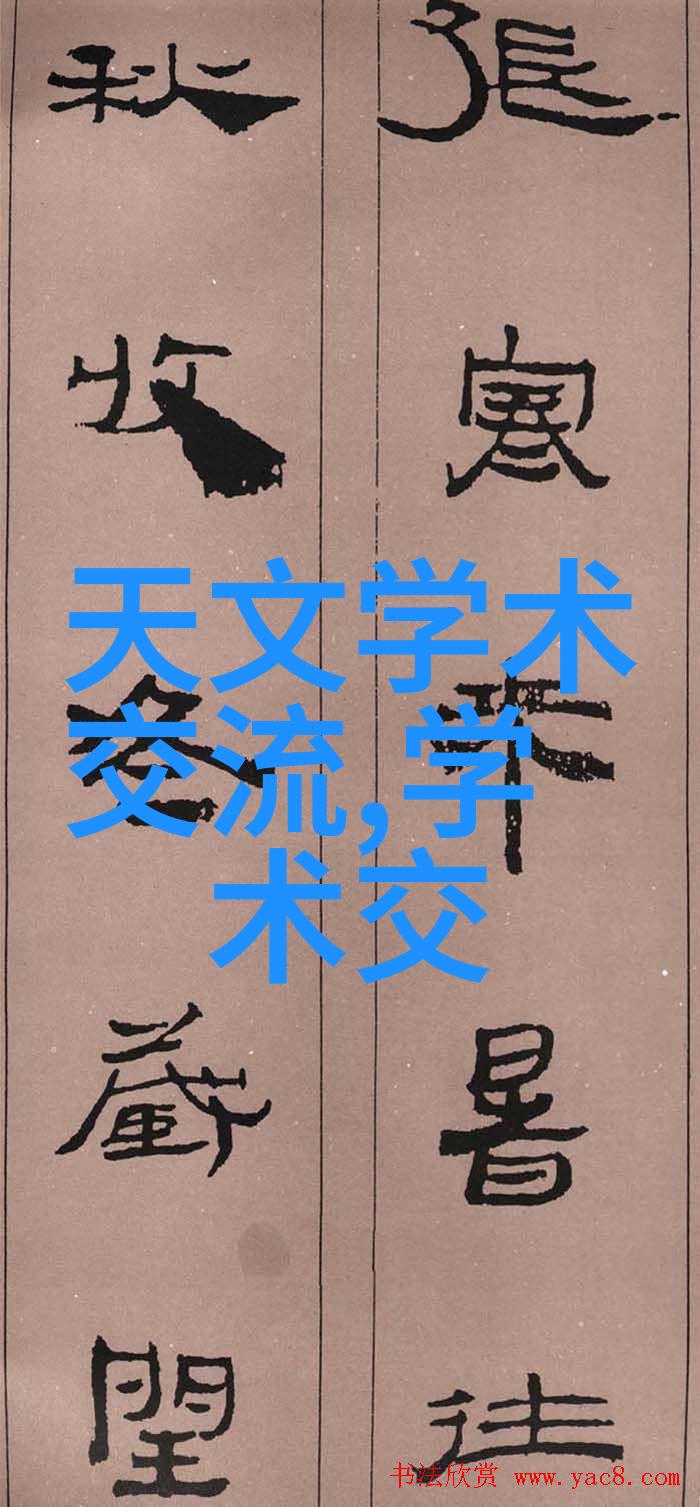 張寒来暑往
秋收冬藏閏
天文学术
交流,学
术交
书法欣赏 www.yac8.com